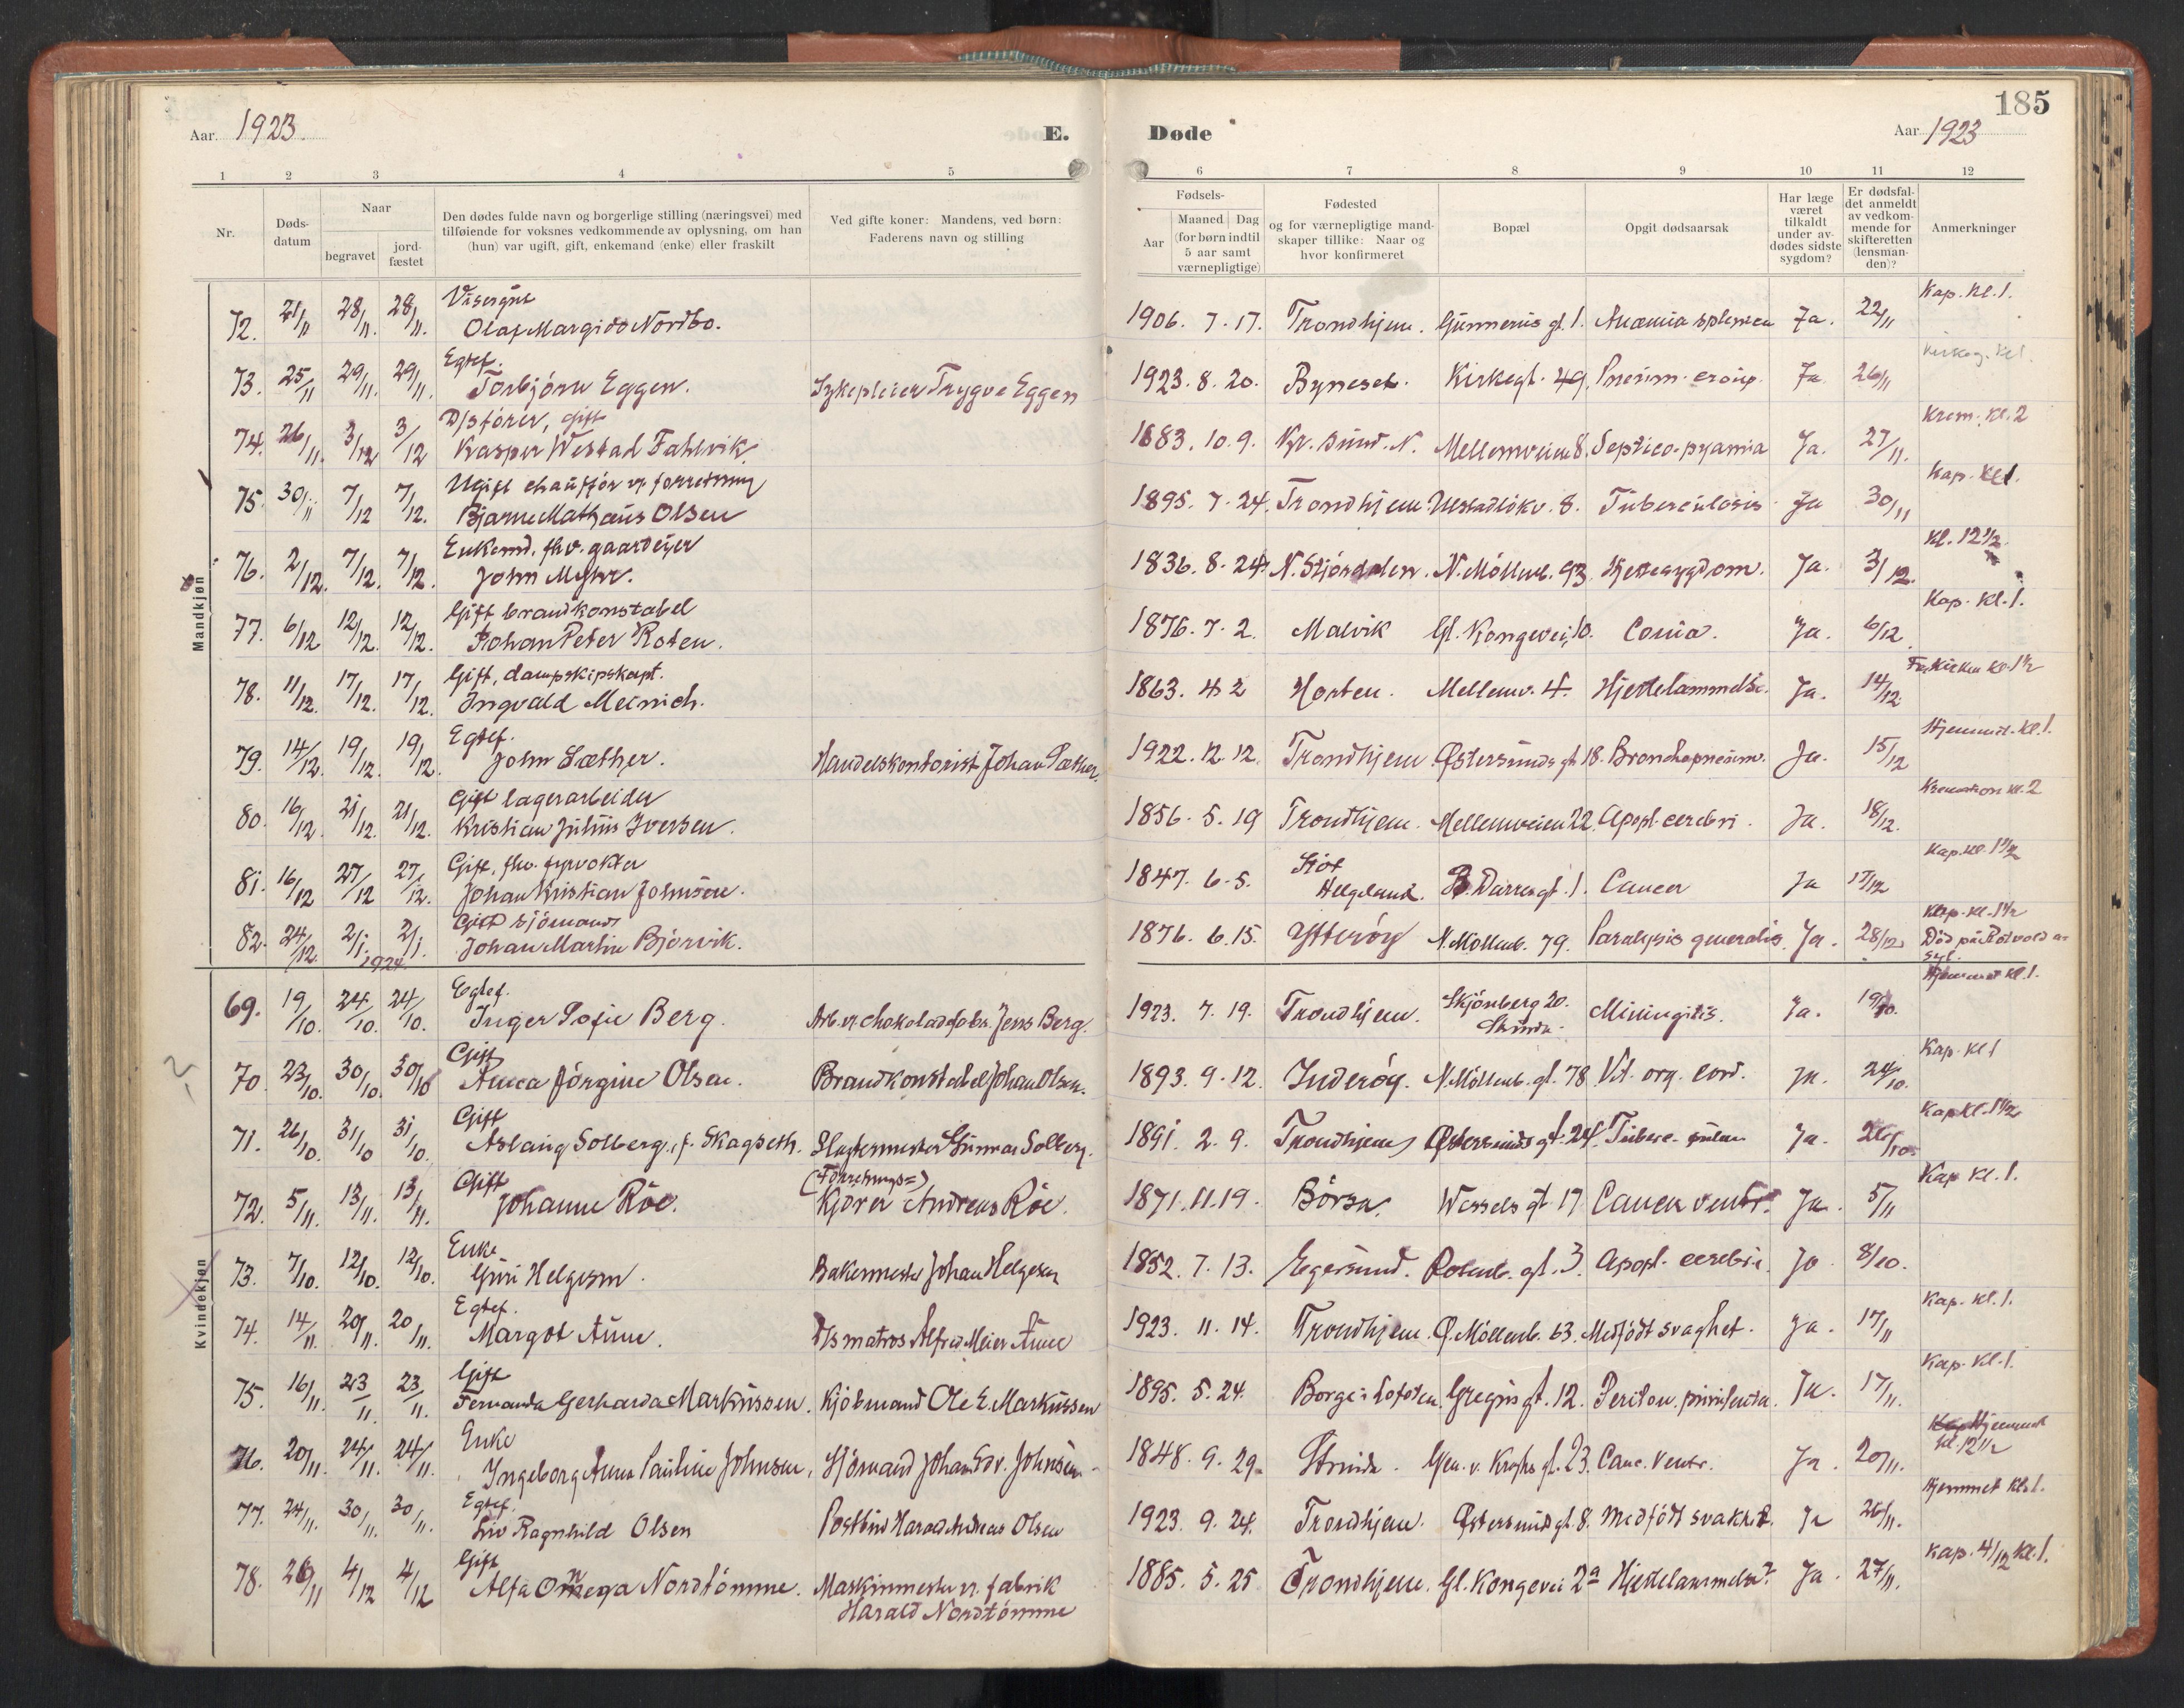 Aar. 1923. E.
Døde Aar 1923 185
1 2 3 4 5
6 7 8 9 10 11 12
Nr. Døds-datum Naar begravet jord-fæstet Den dødes fulde navn og borgerlige stilling (næringsvei) med tilføiende for voksnes vedkommende av oplysning, om han (hun) var ugift, gift, enkemand (enke) eller fraskilt Ved gifte koner: Mandens, ved børn: Faderens navn og stilling
Fødsels- Aar Maaned Dag (for børn indtil 5 aar samt værnepligtige) Fødested og for værnepligtige mandskaper tillike: Naar og hvor konfirmeret Bopæl Opgit dødsaarsak Har læge været tilkaldt under avdødes sidste sygdom? Er dødsfaldet anmeldt av vedkommende for skifteretten (lensmanden)? Anmerkninger
Mandkjøn
Visergut Kap. Kl. 1.
72. 21/11 28/11. 28/11. Olaf Margido Nordbo. 1906. 7. 17. Trondhjem. Gunnerus gt. 1. Anæmia splenica Ja. 22/11
Egtef. Kirkeg. Kl 1.
73. 25/11 29/11. 29/11. Torbjørn Eggen. Sykepleier Trygve Eggen 1923. 8. 20. Byneset. Kirkegt. 49. Pneum. croup. Ja 26/11
D/sfører, gift Krem. Kl. 2
74. 26/11. 3/12 3/12 Kasper Westad Fahlvik 1883. 10. 9. Kr. sund. N. Mellemveien 8. Septico-pyæmia Ja. 27/11.
Ugift chauffør v. forretning Kap. Kl 1.
75. 30/11 7/12 7/12. Bjarne Mathæus Olsen 1895. 7. 24. Trondhjem. Ulstadløkv. 8. Tuberculosis Ja 30/11
Enkemd. fhv. gaardeier Kl. 12 1/2
76. 2/12. 7/12. 7/12. John Myhr. 1836. 8. 24. N. Stjørdalen. N. Møllenb. 93. Hjertesygdom. Ja. 3/12.
Gift brandkonstabel Kap. Kl. 1.
77. 6/12 12/12. 12/12. Johan Peter Roten. 1876. 7. 2. Malvik Gl. Kongevei 10. Coma. Ja. 6/12
Gift, dampskipskapt. Fr. Kirken Kl. 1 1/2
78. 11/12. 17/12. 17/12. Ingvald Meinich. 1863. 4. 2 Horten. Mellemv. 4. Hjertelammelse. Ja. 14/12
Egtef. Hjemmet. Kl. 1.
79. 14/12. 19/12. 19/12. John Sæther. Handelskontorist Johan Sæther. 1922. 12. 12. Trondhjem Østersunds gt 18. Bronchopneum. Ja. 15/12
Gift lagerarbeider Kremation kl. 2
80. 16/12. 21/12. 21/12. Kristian Julius Iversen. 1856. 5. 19 Trondhjem. Mellemveien 22. Apopl. cerebri. Ja. 18/12.
Gift, fhv. fyrvokter Kap. Kl. 1 1/2
81. 16/12 27/12 27/12. Johan Kristian Johnsen. 1847. 6. 5. Støt Helgeland. B. Darresgt. 1. Cancer Ja 17/12
Gift sjømand Kap. Kl. 1 1/2
82. 24/12. 2/1. 2/1. 1924 Johan Martin Bjørvik. 1876. 6. 15. Ytterøy N. Møllenb. 79. Paralysis generalis. Ja. 28/12. Død på Rotvold asyl.
Kvindekjøn
Egtef. Hjemmet Kl. 1.
69. 19/10. 24/10. 24/10. Inger Sofie Berg. Arb. v. chokoladefabr. Jens Berg. 1923. 7. 19. Trondhjem. Skjønberg 20. Strinda. Miningitis. Ja. 19/10.
Gift Kap. Kl 1
70. 23/10. 30/10. 30/10 Anna Jørgine Olsen. Brandkonstabel Johan Olsen. 1893. 9. 12. Inderøy. N. Møllenb. gt. 78 Vit. org. cord. Ja. 24/10.
Gift Kap Kl. 1 1/2
71. 26/10. 31/10 31/10. Aslaug Solberg, f. Skagseth. Slagtermester Gunnar Solberg. 1891. 2. 9. Trondhjem Østersunds gt. 24. Tuberc. pulm Ja. 26/10.
Gift (Forretnings=) Kap Kl. 1.
72. 5/11. 13/11. 13/11. Johanne Röe. Kjører Andreas Röe. 1871. 11. 19. Børsa. Wessels gt. 17 Cancer ventr. Ja. 5/11
Enke
73. 7/10. 12/10. 12/10. Guri Helgesen. Bakermester Johan Helgesen 1852. 7. 13. Egersund. Rosenb. gt. 3. Apopl. cerebri. Ja 8/10.
Egtef. Kap. Kl. 1.
74. 14/11. 20/11. 20/11. Margot Aune. D/s matros Alfred Meier Aune 1923. 11. 14. Trondhjem. Ø. Møllenb. 63. Medfødt svaghet. Ja. 17/11
Gift Kap. Kl. 1.
75. 16/11. 23/11. 23/11. Fernanda Gerharda Markussen. Kjøbmand Ole E. Markussen 1895. 5. 24. Borge i Lofoten. Gregus gt. 12. Periton. Ja. 17/11.
Enke Hjemmet Kl. 12 1/2
76. 20/11. 24/11. 24/11. Ingeborg Anna Pauline Johnsen. Sjømand Johan Edv. Johnsen 1848. 9. 29. Strinda. Gen. v. Kroghs gt. 23. Canc. ventr. Ja. 20/11.
Egtef. Hjemmet Kl. 1.
77. 24/11. 30/11. 30/11. Liv Ragnhild Olsen Postbud Harald Andreas Olsen 1923. 9. 24. Trondhjem. Østersundsgt. 8. Medfødt svakhet. Ja 26/11.
Gift Kap. 4/12 Kl. 1.
78. 26/11 4/12 4/12 Alfa Omega Nordtømme. Maskinmester v. fabrik Harald Nordtømme 1885. 5. 25 Trondhjem. Gl. Kongevei 2a Hjertelammelse. Ja. 27/11.